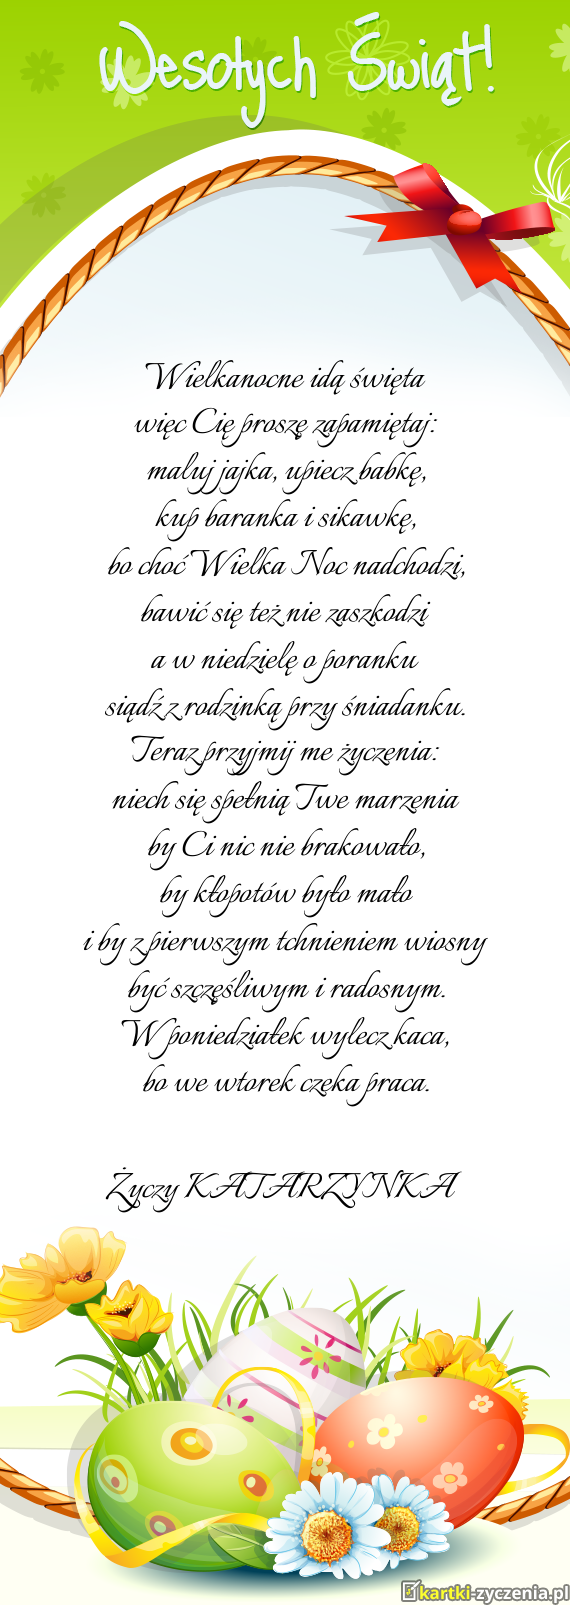 Wesołych Świąt!
Wielkanocne idą święta
więc Cię proszę zapamiętaj:
maluj jajka, upiecz babkę,
kup baranka i sikawkę,
bo choć Wielka Noc nadchodzi,
bawić się też nie zaszkodzi
a w niedzielę o poranku
siądź z rodzinką przy śniadanku.
Teraz przyjmij me życzenia:
niech się spełnią Twe marzenia
by Ci nic nie brakowało,
by kłopotów było mało
i by z pierwszym tchnieniem wiosny
być szczęśliwym i radosnym.
W poniedziałek wylecz kaca,
bo we wtorek czeka praca.
Życzy KATARZYNKA
kartki-zyczenia.pl